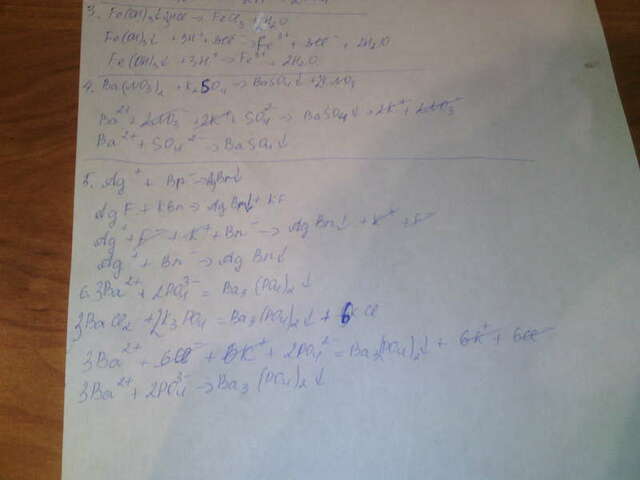 3. Fe(OH)3↓ + 3HCl → FeCl3 + 2H2O
Fe(OH)3↓ + 3H⁺ + 3Cl⁻ → Fe³⁺ + 3Cl⁻ + 2H2O
Fe(OH)3↓ + 3H⁺ → Fe³⁺ + 2H2O
4. Ba(NO3)2 + K2SO4 → BaSO4↓ + 2KNO3
Ba²⁺ + 2NO3⁻ + 2K⁺ + SO4²⁻ → BaSO4↓ + 2K⁺ + 2NO3⁻
Ba²⁺ + SO4²⁻ → BaSO4↓
5. Ag⁺ + Br⁻ → AgBr↓
AgF + KBr → AgBr↓ + KF
Ag⁺ + F⁻ + K⁺ + Br⁻ → AgBr↓ + K⁺ + F⁻
Ag⁺ + Br⁻ → AgBr↓
6. 3Ba²⁺ + 2PO4³⁻ = Ba3(PO4)2↓
3BaCl2 + 2K3PO4 = Ba3(PO4)2↓ + 6KCl
3Ba²⁺ + 6Cl⁻ + 6K⁺ + 2PO4³⁻ = Ba3(PO4)2↓ + 6K⁺ + 6Cl⁻
3Ba²⁺ + 2PO4³⁻ → Ba3(PO4)2↓